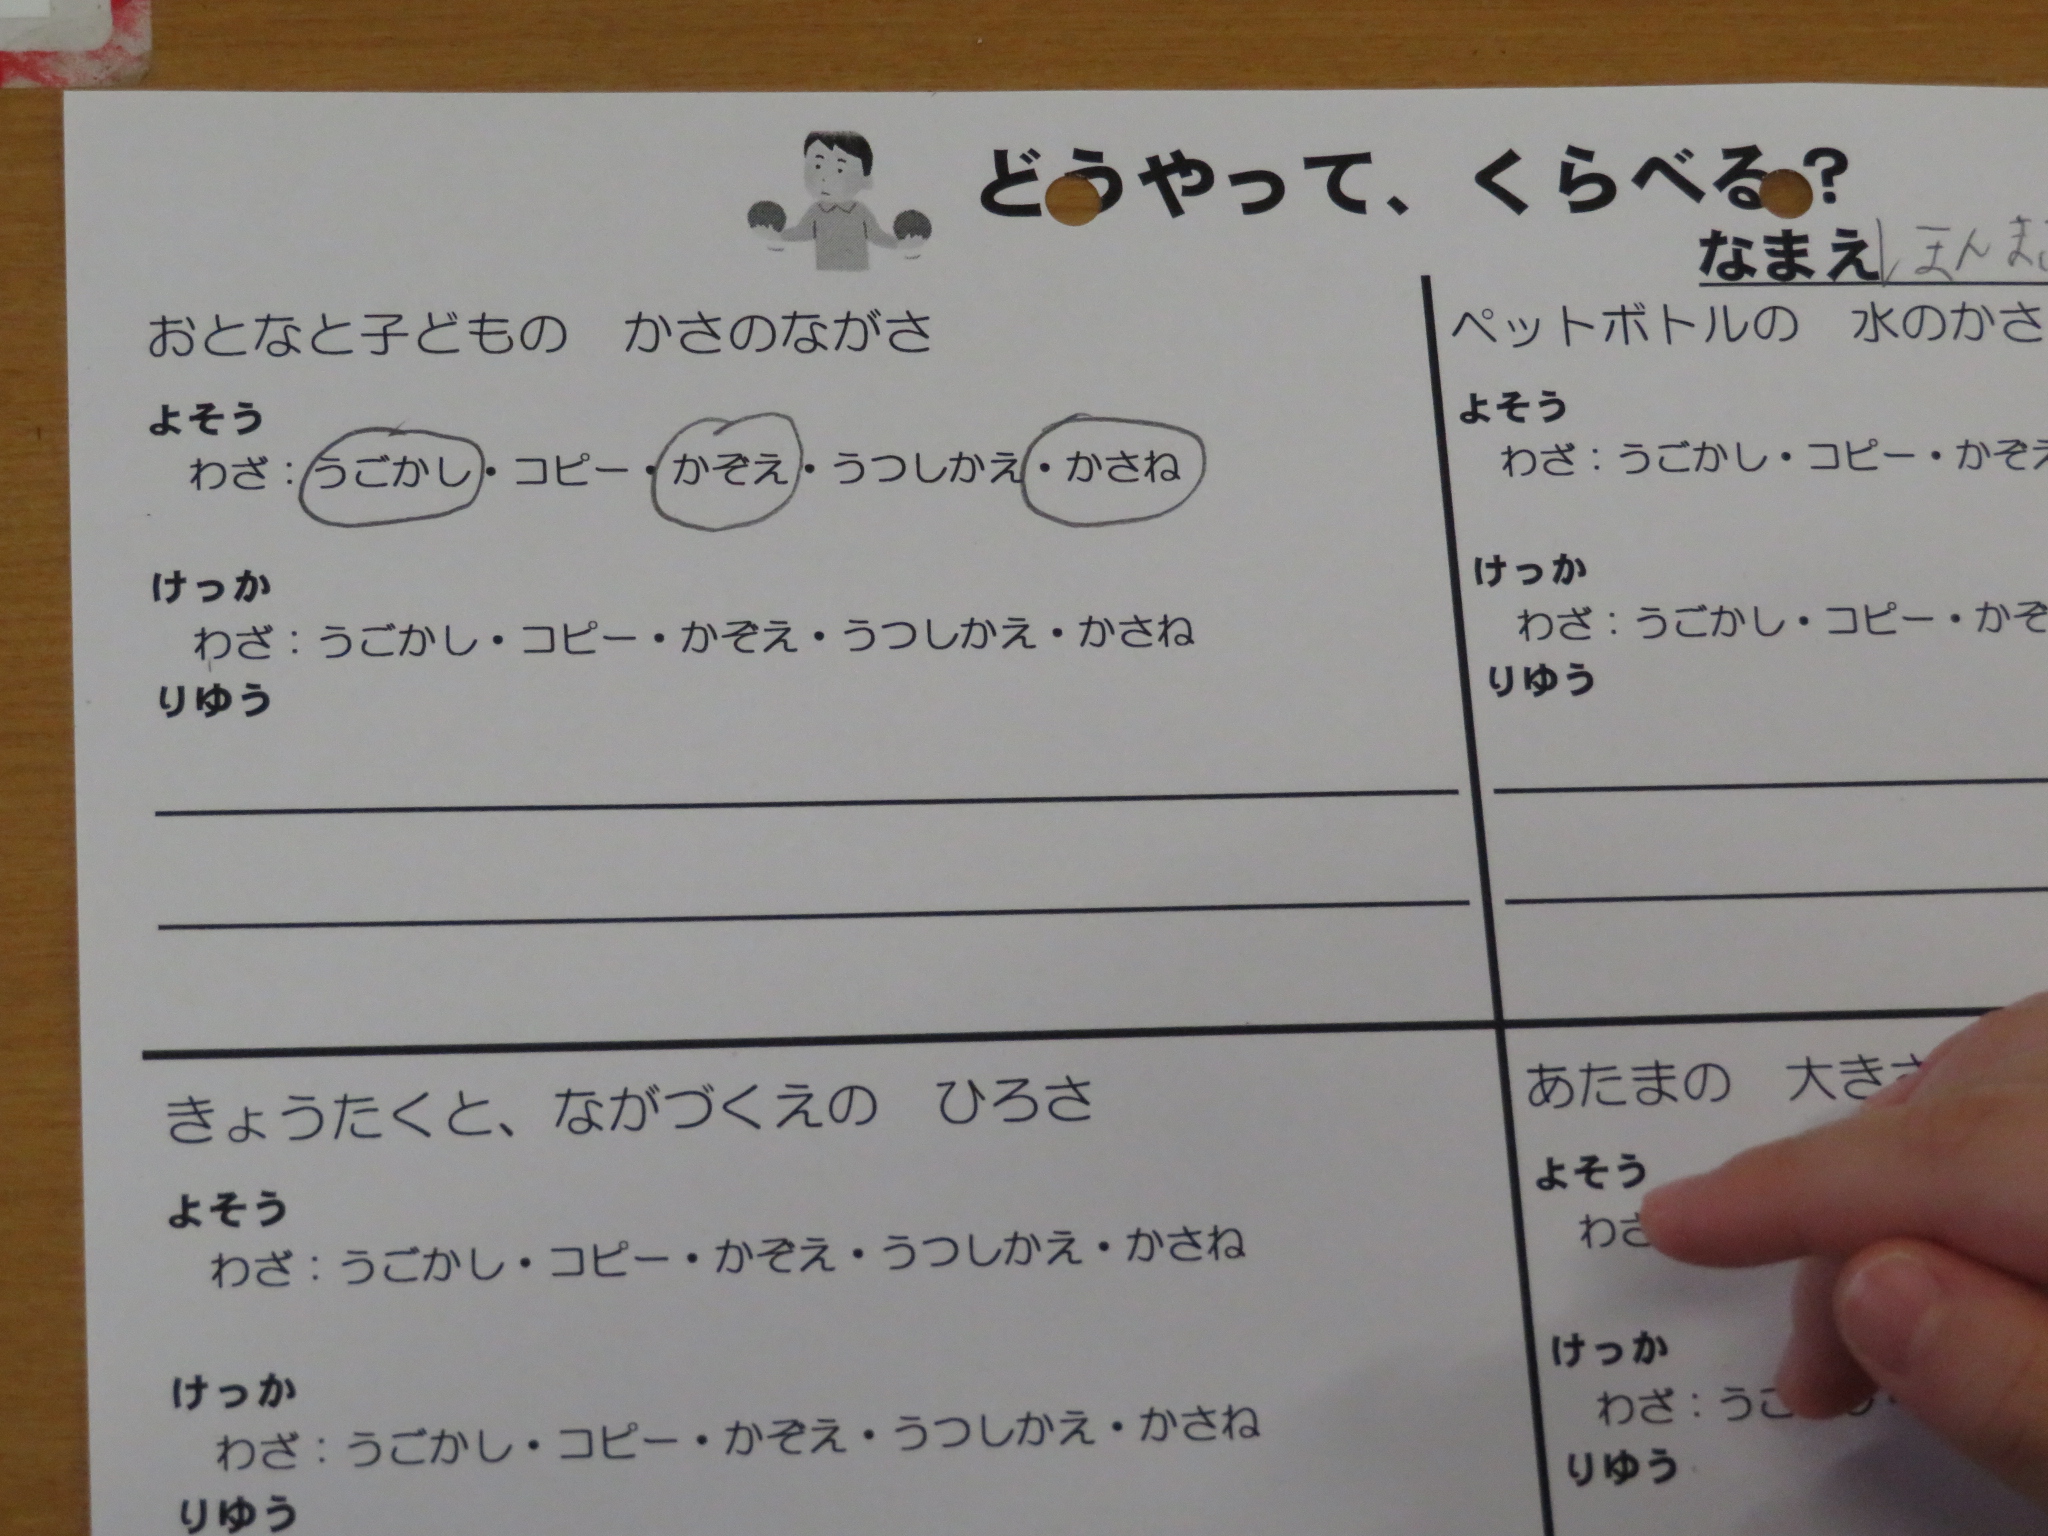 どうやって、くらべる?
なまえ ほんま
おとなと子どもの　かさのながさ
よそう
わざ：うごかし・コピー・かぞえ・うつしかえ・かさね
けっか
わざ：うごかし・コピー・かぞえ・うつしかえ・かさね
りゆう
ペットボトルの　水のかさ
よそう
わざ：うごかし・コピー・かぞえ
けっか
わざ：うごかし・コピー・かぞ
りゆう
きょうたくと、ながづくえの　ひろさ
よそう
わざ：うごかし・コピー・かぞえ・うつしかえ・かさね
けっか
わざ：うごかし・コピー・かぞえ・うつしかえ・かさね
りゆう
あたまの　大きさ
よそう
わざ
けっか
わざ：うご
りゆう